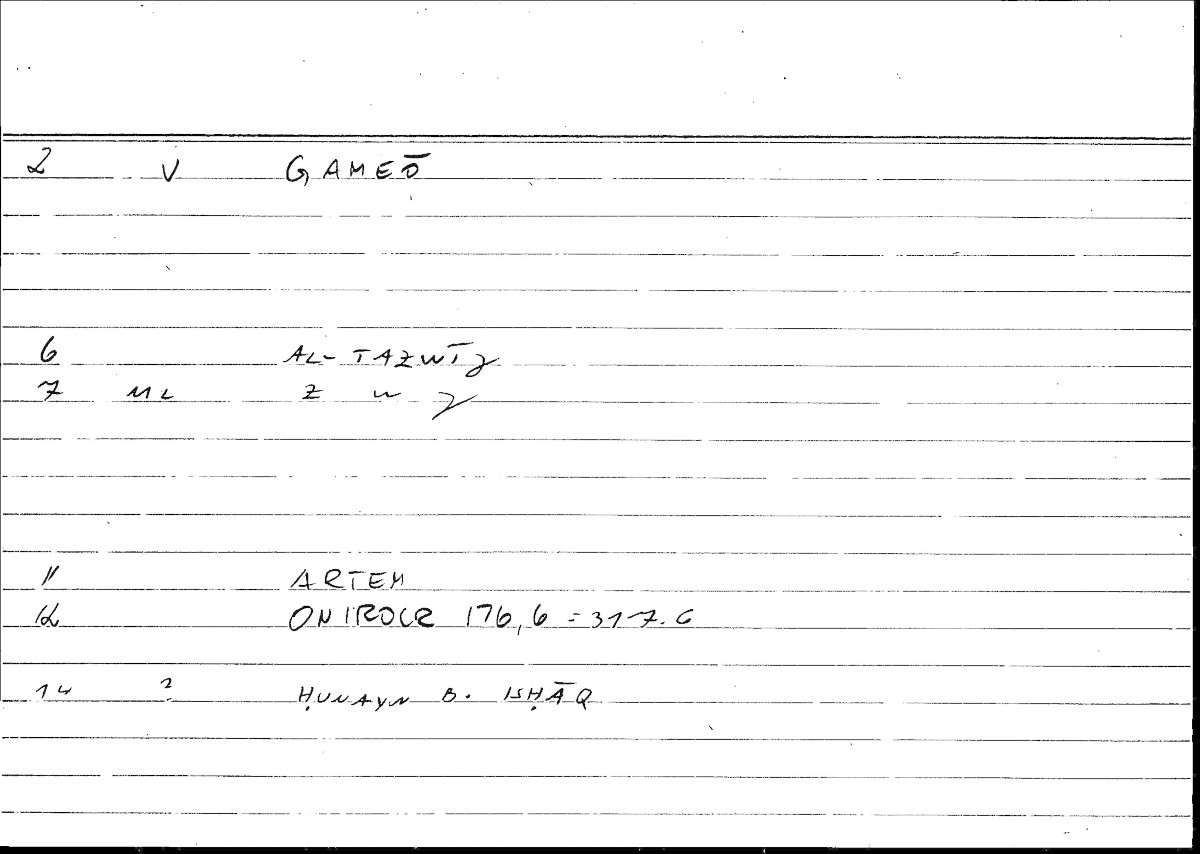 2 V GAMEŌ
6 AL-TAZWĪǧ
7 ML Z W ǧ
11 ARTEM
12 ONIROCR 176,6 = 317.6
14 2 ḤUNAYN B. ISḤĀQ